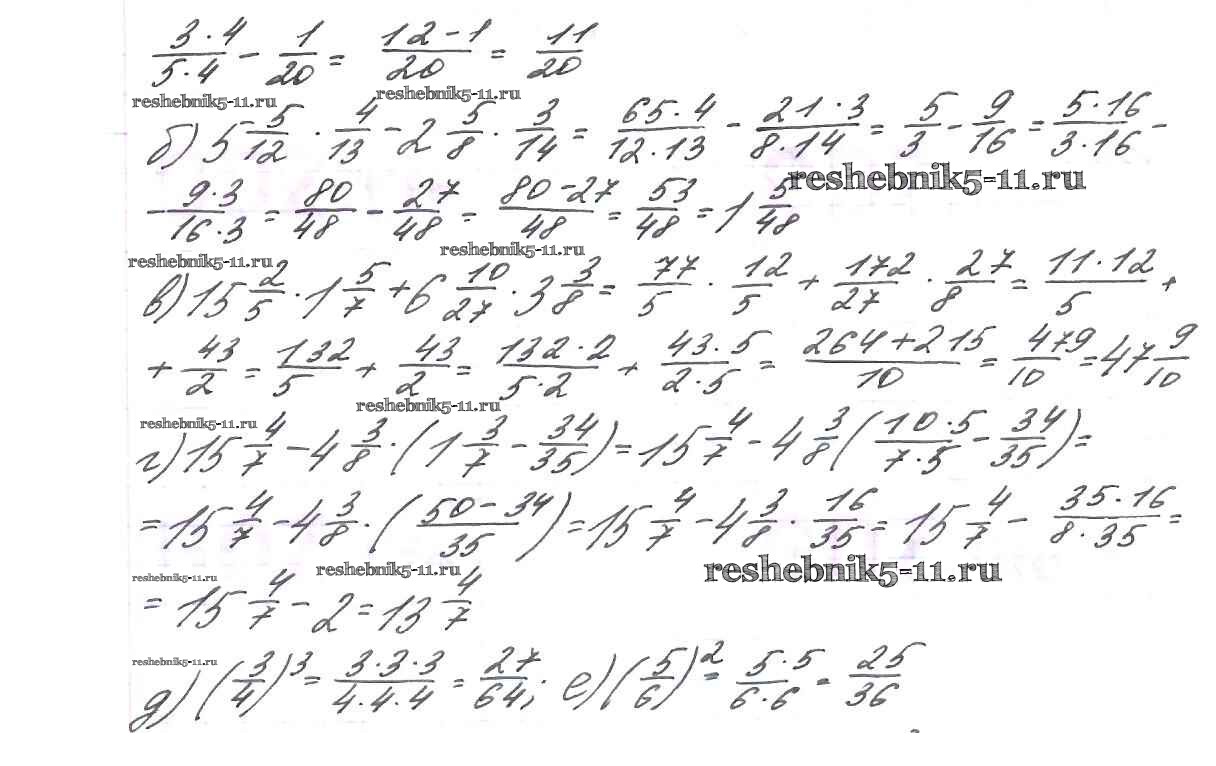 3·4/5·4 − 1/20 = 12−1/20 = 11/20
reshebnik5-11.ru reshebnik5-11.ru
б) 5 5/12 · 4/13 − 2 5/8 · 3/14 = 65·4/12·13 − 21·3/8·14 = 5/3 − 9/16 = 5·16/3·16 −
reshebnik5-11.ru
− 9·3/16·3 = 80/48 − 27/48 = 80−27/48 = 53/48 = 1 5/48
reshebnik5-11.ru reshebnik5-11.ru
в) 15 2/5 · 1 5/7 + 6 10/27 · 3 3/8 = 77/5 · 12/5 + 172/27 · 27/8 = 11·12/5 +
+ 43/2 = 132/5 + 43/2 = 132·2/5·2 + 43·5/2·5 = 264+215/10 = 479/10 = 47 9/10
reshebnik5-11.ru reshebnik5-11.ru
г) 15 4/7 − 4 3/8 · (1 3/7 − 34/35) = 15 4/7 − 4 3/8 (10·5/7·5 − 34/35) =
= 15 4/7 − 4 3/8 · (50−34/35) = 15 4/7 − 4 3/8 · 16/35 = 15 4/7 − 35·16/8·35 =
reshebnik5-11.ru reshebnik5-11.ru reshebnik5-11.ru
= 15 4/7 − 2 = 13 4/7
reshebnik5-11.ru
д) (3/4)³ = 3·3·3/4·4·4 = 27/64; е) (5/6)² = 5·5/6·6 = 25/36